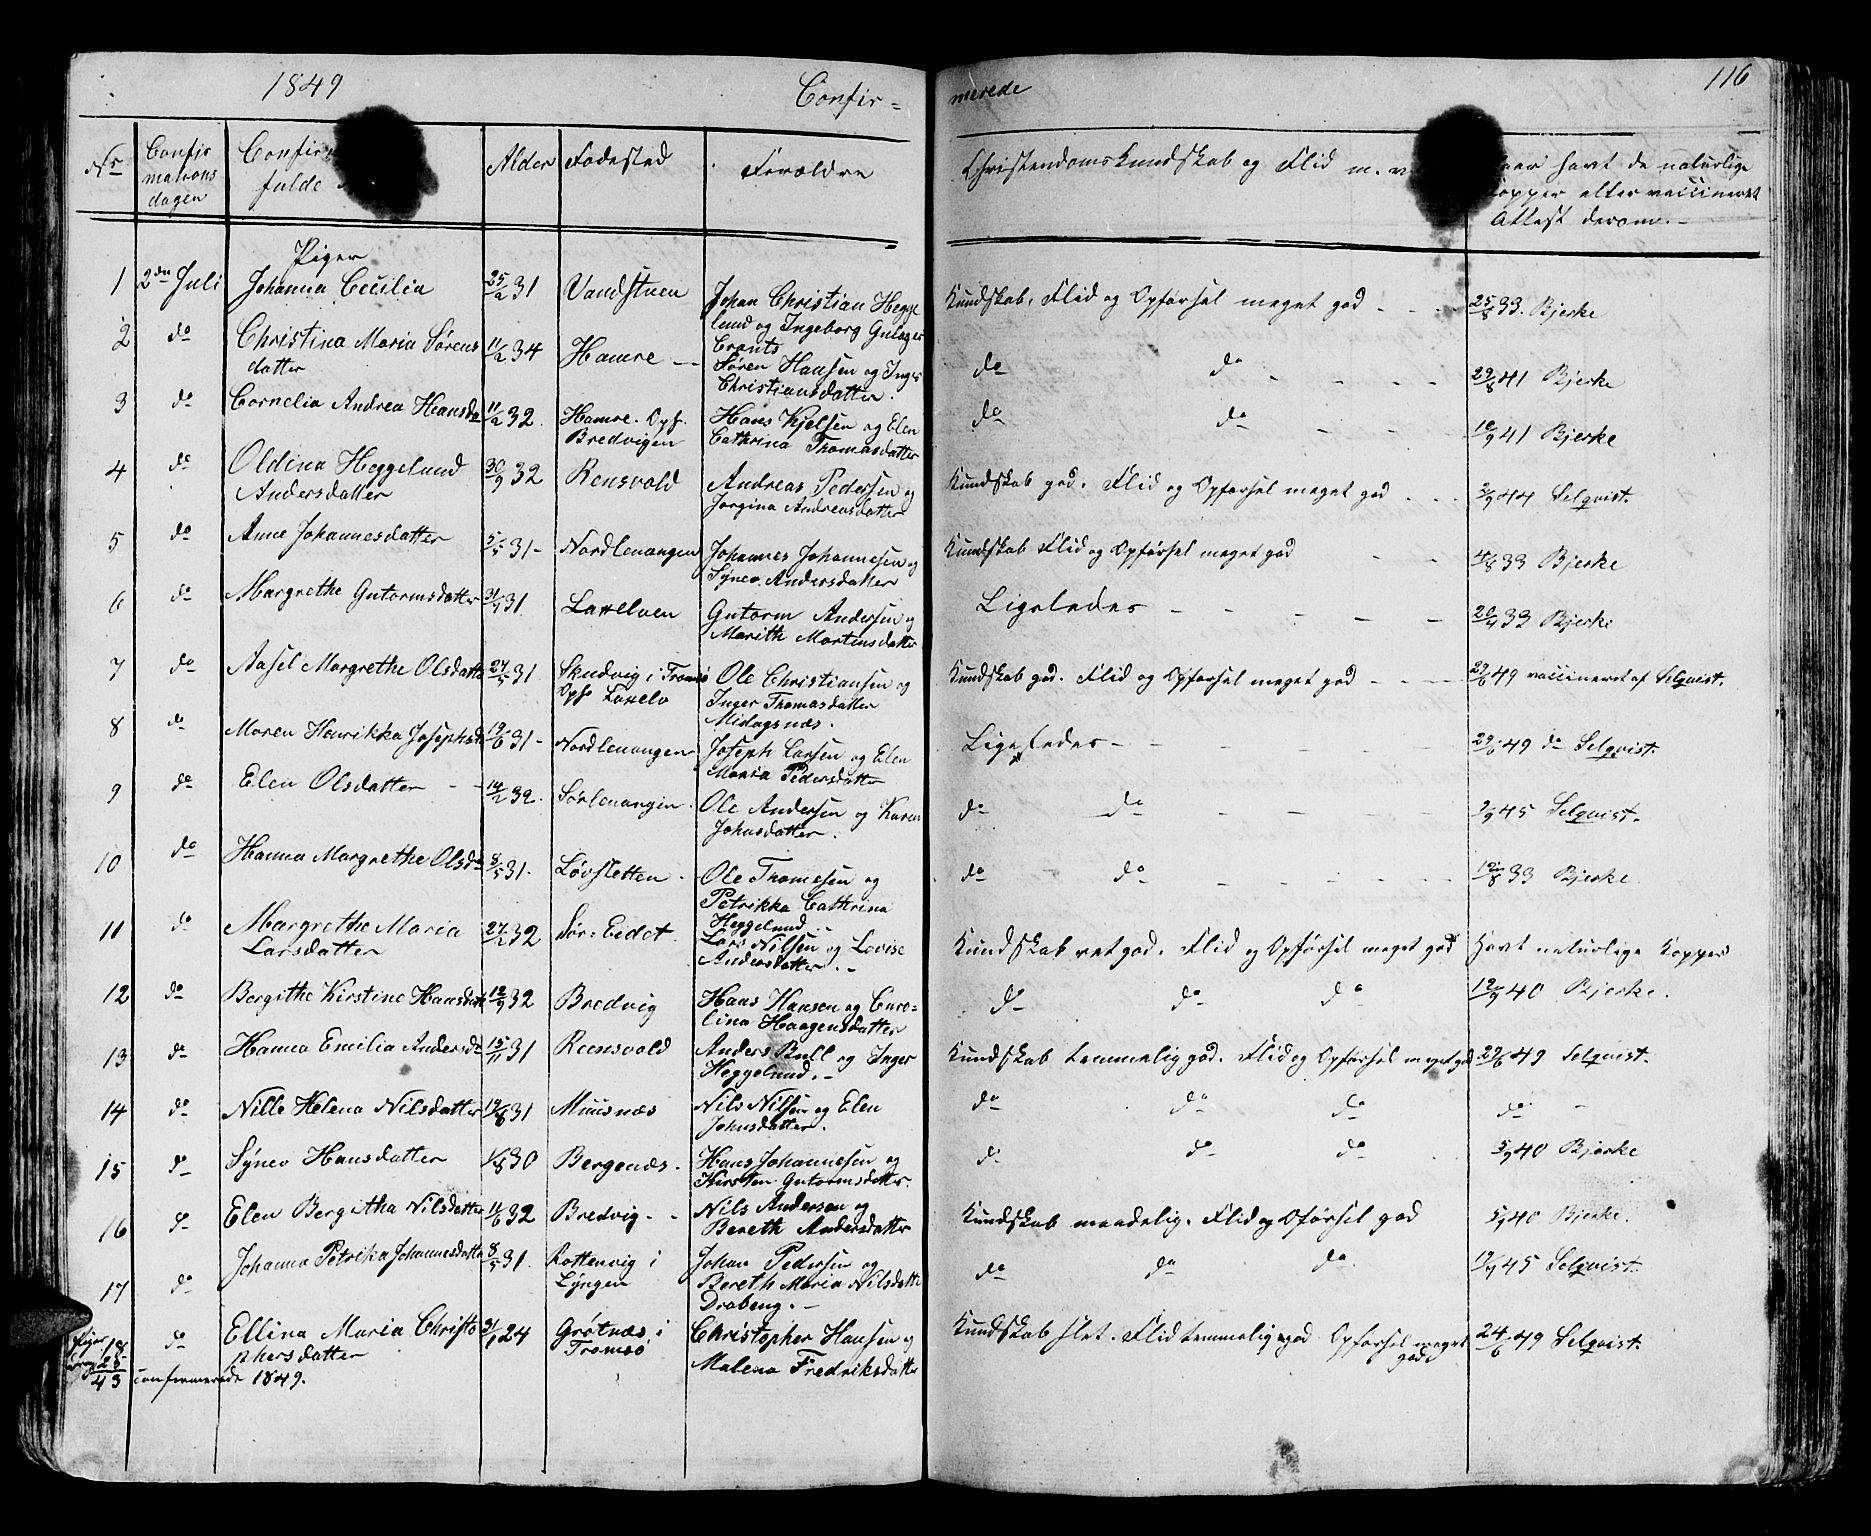 1849 Confir= merede 116
No Confir mations dagen Confir fulde Alder Fødested Forældre Christendomskundskab og Flid m. v. havt de naturlige
Kopper eller vaccineret
Attest derom.-
Piger
1 2den Juli Johanna Cecilia 25/2 31 Vandstuen Johan Christian Hegge
lund og Ingeborg Gulager
Crants Kundskab, Flid og Opførsel meget god - - - 25/8 33. Bjerke
2 do Christina Maria Sørens
datter 11/2 34 Hamre - - Søren Hansen og Inger
Christiansdatter. do do - - - - 29/8 41 Bjerke
3 do Cornelia Andrea Hansda 11/2 32. Hamre. Opf.
Bredvigen Hans Kjelsen og Elen
Cathrina Thomasdatter do do - - - 10/9 41 Bjerke
4 do Oldina Heggelund
Andersdatter 30/9 32 Rensvold Andreas Pedersen og
Jørgina Andreasdatter Kundskab god. Flid og Opførsel meget god - - - 2/9 44 Selqvist.
5 do Anne Johannesdatter 5/5 31 - Nordlenangen Johannes Johannesen og
Synev Andersdatter Kundskab Flid og Opførsel meget god - - 4/8 33 Bjerke
6 do Margrethe Gutormsdatter 31/7 31. Laxelven Gutorm Andersen og
Marith Mortensdatter Ligeledes - - - - - 20/7 33 Bjerke
7 do Aasel Margrethe Olsdatte 27/5 31. Skudvig i Tromsø
Opf Laxelv Ole Christiansen og
Inger Thomasdatter
Midagsnæs. Kundskab god. Flid og Opførsel meget god - - - 29/6 49 vaccineret af Selqvist.
8 do Maren Henrikka Josephsd 19/6 31 - Nordlenangen Joseph Larsen og Elen
Maria Pedersdatter Ligeledes - - - - - 29/6 49 do Selqvist.
9 do Elen Olsdatter - - 14/2 32. Sørlenangen. Ole Andersen og Karen
Johnsdatter. do do - - - - 2/9 45 Selqvist.
10 do Hanna Margrethe Olsda 8/5 31. Løvsletten. Ole Thomesen og
Petrikka Cathrina
Heggelund do do - - - - - 12/8 33 Bjerke.
11 do Margrethe Maria
Larsdatter 27/12 32 Sør-Eidet Lars Nilsen og Lovise
Andersdatter.- Kundskab ret god. Flid og Opførsel meget god Havt naturlige Kopper
12 do Bergithe Kirstine Hansdatt 12/9 32 Bredvig Hans Hansen og Caro=
lina Haagensdatter do do do 12/9 40 Bjerke.
13 do Hanna Emilia Andersda 15/11 31 Reensvold Anders Bull og Inger
Heggelund.- Kundskab temmelig god. Flid og Opførsel meget god 29/6 49 Selqvist.
14 do Nille Helena Nilsdatter 19/8 31 Muusnæs Nils Nilsen og Elen
Johnsdatter. do do do do -
15 do Synev Hansdatter 1/8 30 Bergenæs. Hans Johannesen og
Kirsten Gutormsdatter. do do do 5/9 40 Bjerke
16 do Elen Bergitha Nilsdatter 11/6 32 Bredvig - - Nils Andersen og
Bereth Andersdatter Kundskab maadelig. Flid og Opførsel god 5/9 40 Bjerke.
17 do Johanna Petrika Johannesdatte 8/5 31. Rottenvig i
Lyngen Johan Pedersen og
Bereth Maria Nilsdatte
Drabeng.- do do do 19/7 45 Selqvist.
18 do Ellina Maria Christo
phersdatter 31/1 24 Grøtnæs, i
Tromsø Christopher Hansen og
Malena Fredriksdatter Kundskab slet. Flid temmelig god Opførsel meget
god 24/6 49 Selqvist.
Piger 18
25
43 confirmerede 1849.